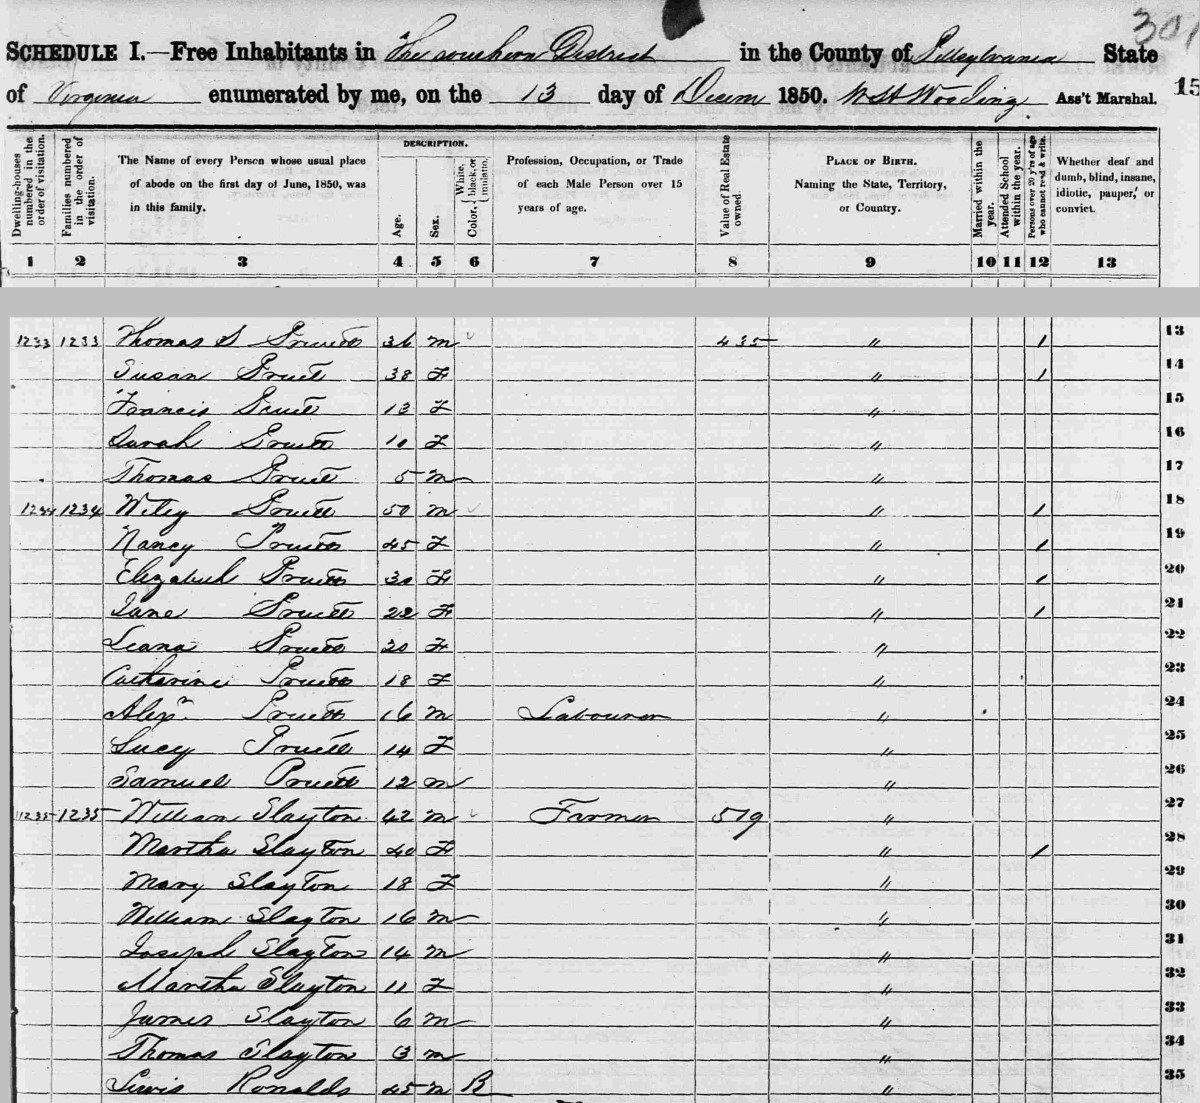 301
SCHEDULE I.—Free Inhabitants in The Southern District in the County of Pittsylvania State
of Virginia enumerated by me, on the 13 day of Decem 1850. Wooding Ass't Marshal. 15
Dwelling-houses numbered in the order of visitation.
Families numbered in the order of visitation.
The Name of every Person whose usual place of abode on the first day of June, 1850, was in this family.
DESCRIPTION.
Age.
Sex.
Color. { White, black, or mulatto.
Profession, Occupation, or Trade of each Male Person over 15 years of age.
Value of Real Estate owned.
PLACE OF BIRTH. Naming the State, Territory, or Country.
Married within the year.
Attended School within the year.
Persons over 20 y'rs of age who cannot read & write.
Whether deaf and dumb, blind, insane, idiotic, pauper, or convict.
1 2 3 4 5 6 7 8 9 10 11 12 13
1233 1233 Thomas S Pruett 36 m 435 " 1 13
Susan Pruett 38 F " 1 14
Francis Pruett 12 F " 15
Sarah Pruett 10 F " 16
Thomas Pruett 5 m " 17
1234 1234 Wiley Pruett 50 m " 1 18
Nancy Pruett 45 F " 1 19
Elizabeth Pruett 30 F " 1 20
Jane Pruett 22 F " 1 21
Leana Pruett 20 F " 22
Catharine Pruett 18 F " 23
Alexr Pruett 16 m Labourer " 24
Lucy Pruett 14 F " 25
Samuel Pruett 12 m " 26
1235 1235 William Slayton 42 m Farmer 579 " 27
Martha Slayton 40 F " 1 28
Mary Slayton 18 F " 29
William Slayton 16 m " 30
Joseph Slayton 14 m " 31
Martha Slayton 11 F " 32
James Slayton 6 m " 33
Thomas Slayton 3 m " 34
Lewis Ronalds 45 m B " 35